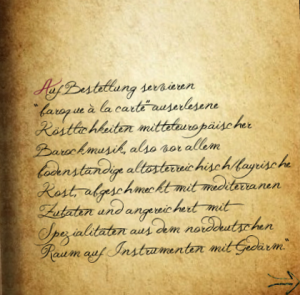 Auf Bestellung servieren
"baroque à la carte" auserlesene
Köstlichkeiten mitteleuropäischer
Barockmusik, also vor allem
bodenständige altösterreichisch/bayrische
Kost, abgeschmeckt mit mediterranen
Zutaten und angereichert mit
Spezialitäten aus dem norddeutschen
Raum auf Instrumenten mit Gedärm"